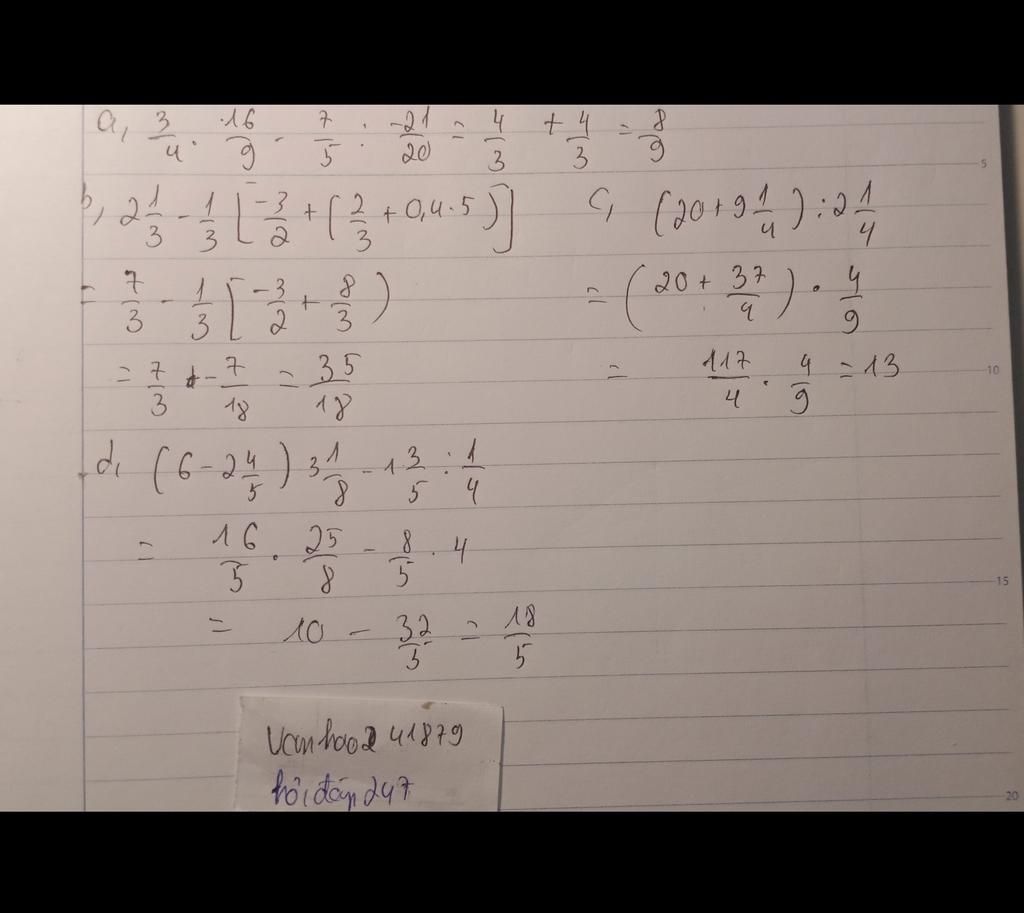 a, 3/4 . 16/9 - 7/5 : -21/20 = 4/3 + 4/3 = 8/9
b, 2 1/3 - 1/3 [ -3/2 + ( 2/3 + 0,4 . 5 ) ]
= 7/3 - 1/3 [ -3/2 + 8/3 )
= 7/3 - 7/18 = 35/18
c, ( 20 + 9 1/4 ) : 2 1/4
= ( 20 + 37/4 ) . 4/9
= 117/4 . 4/9 = 13
d, ( 6 - 2 4/5 ) 3 1/8 - 1 3/5 : 1/4
= 16/5 . 25/8 - 8/5 . 4
= 10 - 32/5 = 18/5
vanhao2 41879
hỏi đáp 247
5
10
15
20